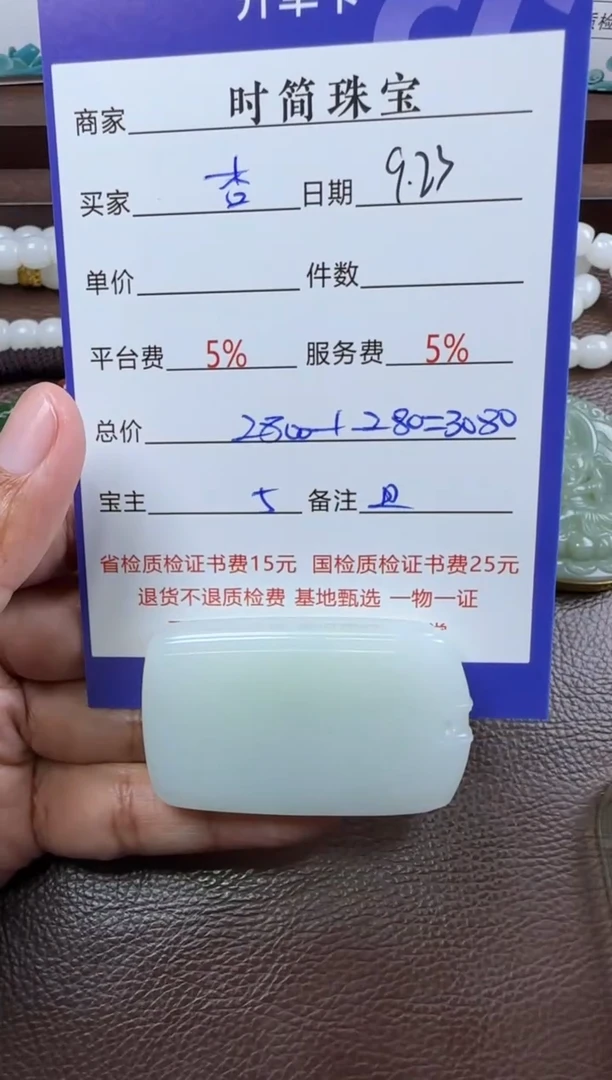 开单卡
商家 时简珠宝
买家 杏 日期 9.23
单价 件数
平台费 5% 服务费 5%
总价 2800+280=3080
宝主 备注
省检质检证书费15元 国检质检证书费25元
退货不退质检费 基地甄选 一物一证